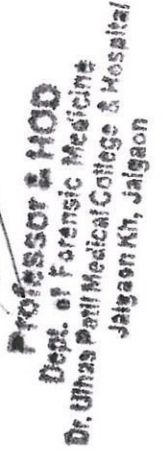 Professor & HOD
Dept. of Forensic Medicine
Dr. Ulhas Patil Medical College & Hospital
Jalgaon Kh, Jalgaon